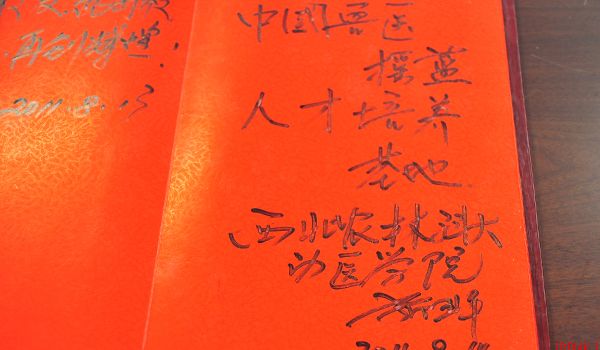 再创辉煌!
2011.8.13
中国兽医
摇蓝
人才培养
基地
西北农林科大
动医学院